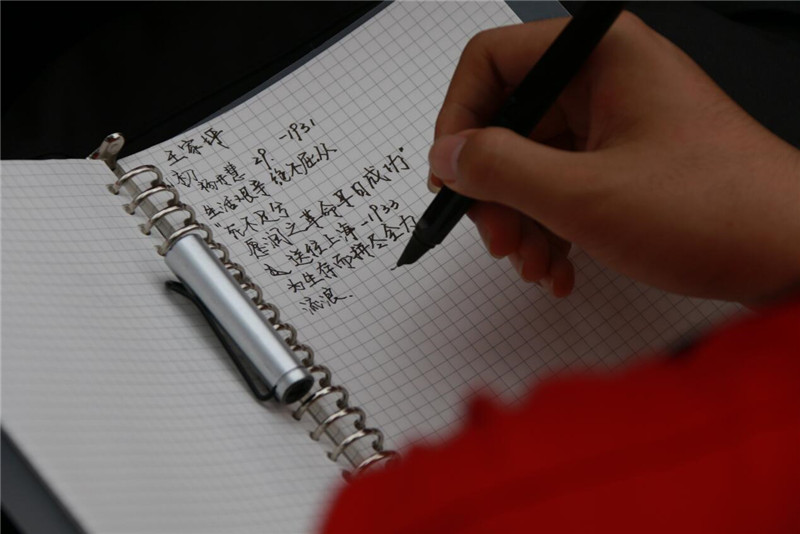 王家坪
初 杨开慧 29. -1931
生活艰辛 绝不屈从
"死不足兮
愿润之革命早日成功"
送往上海-1933
为生存而拼尽全力
流浪.